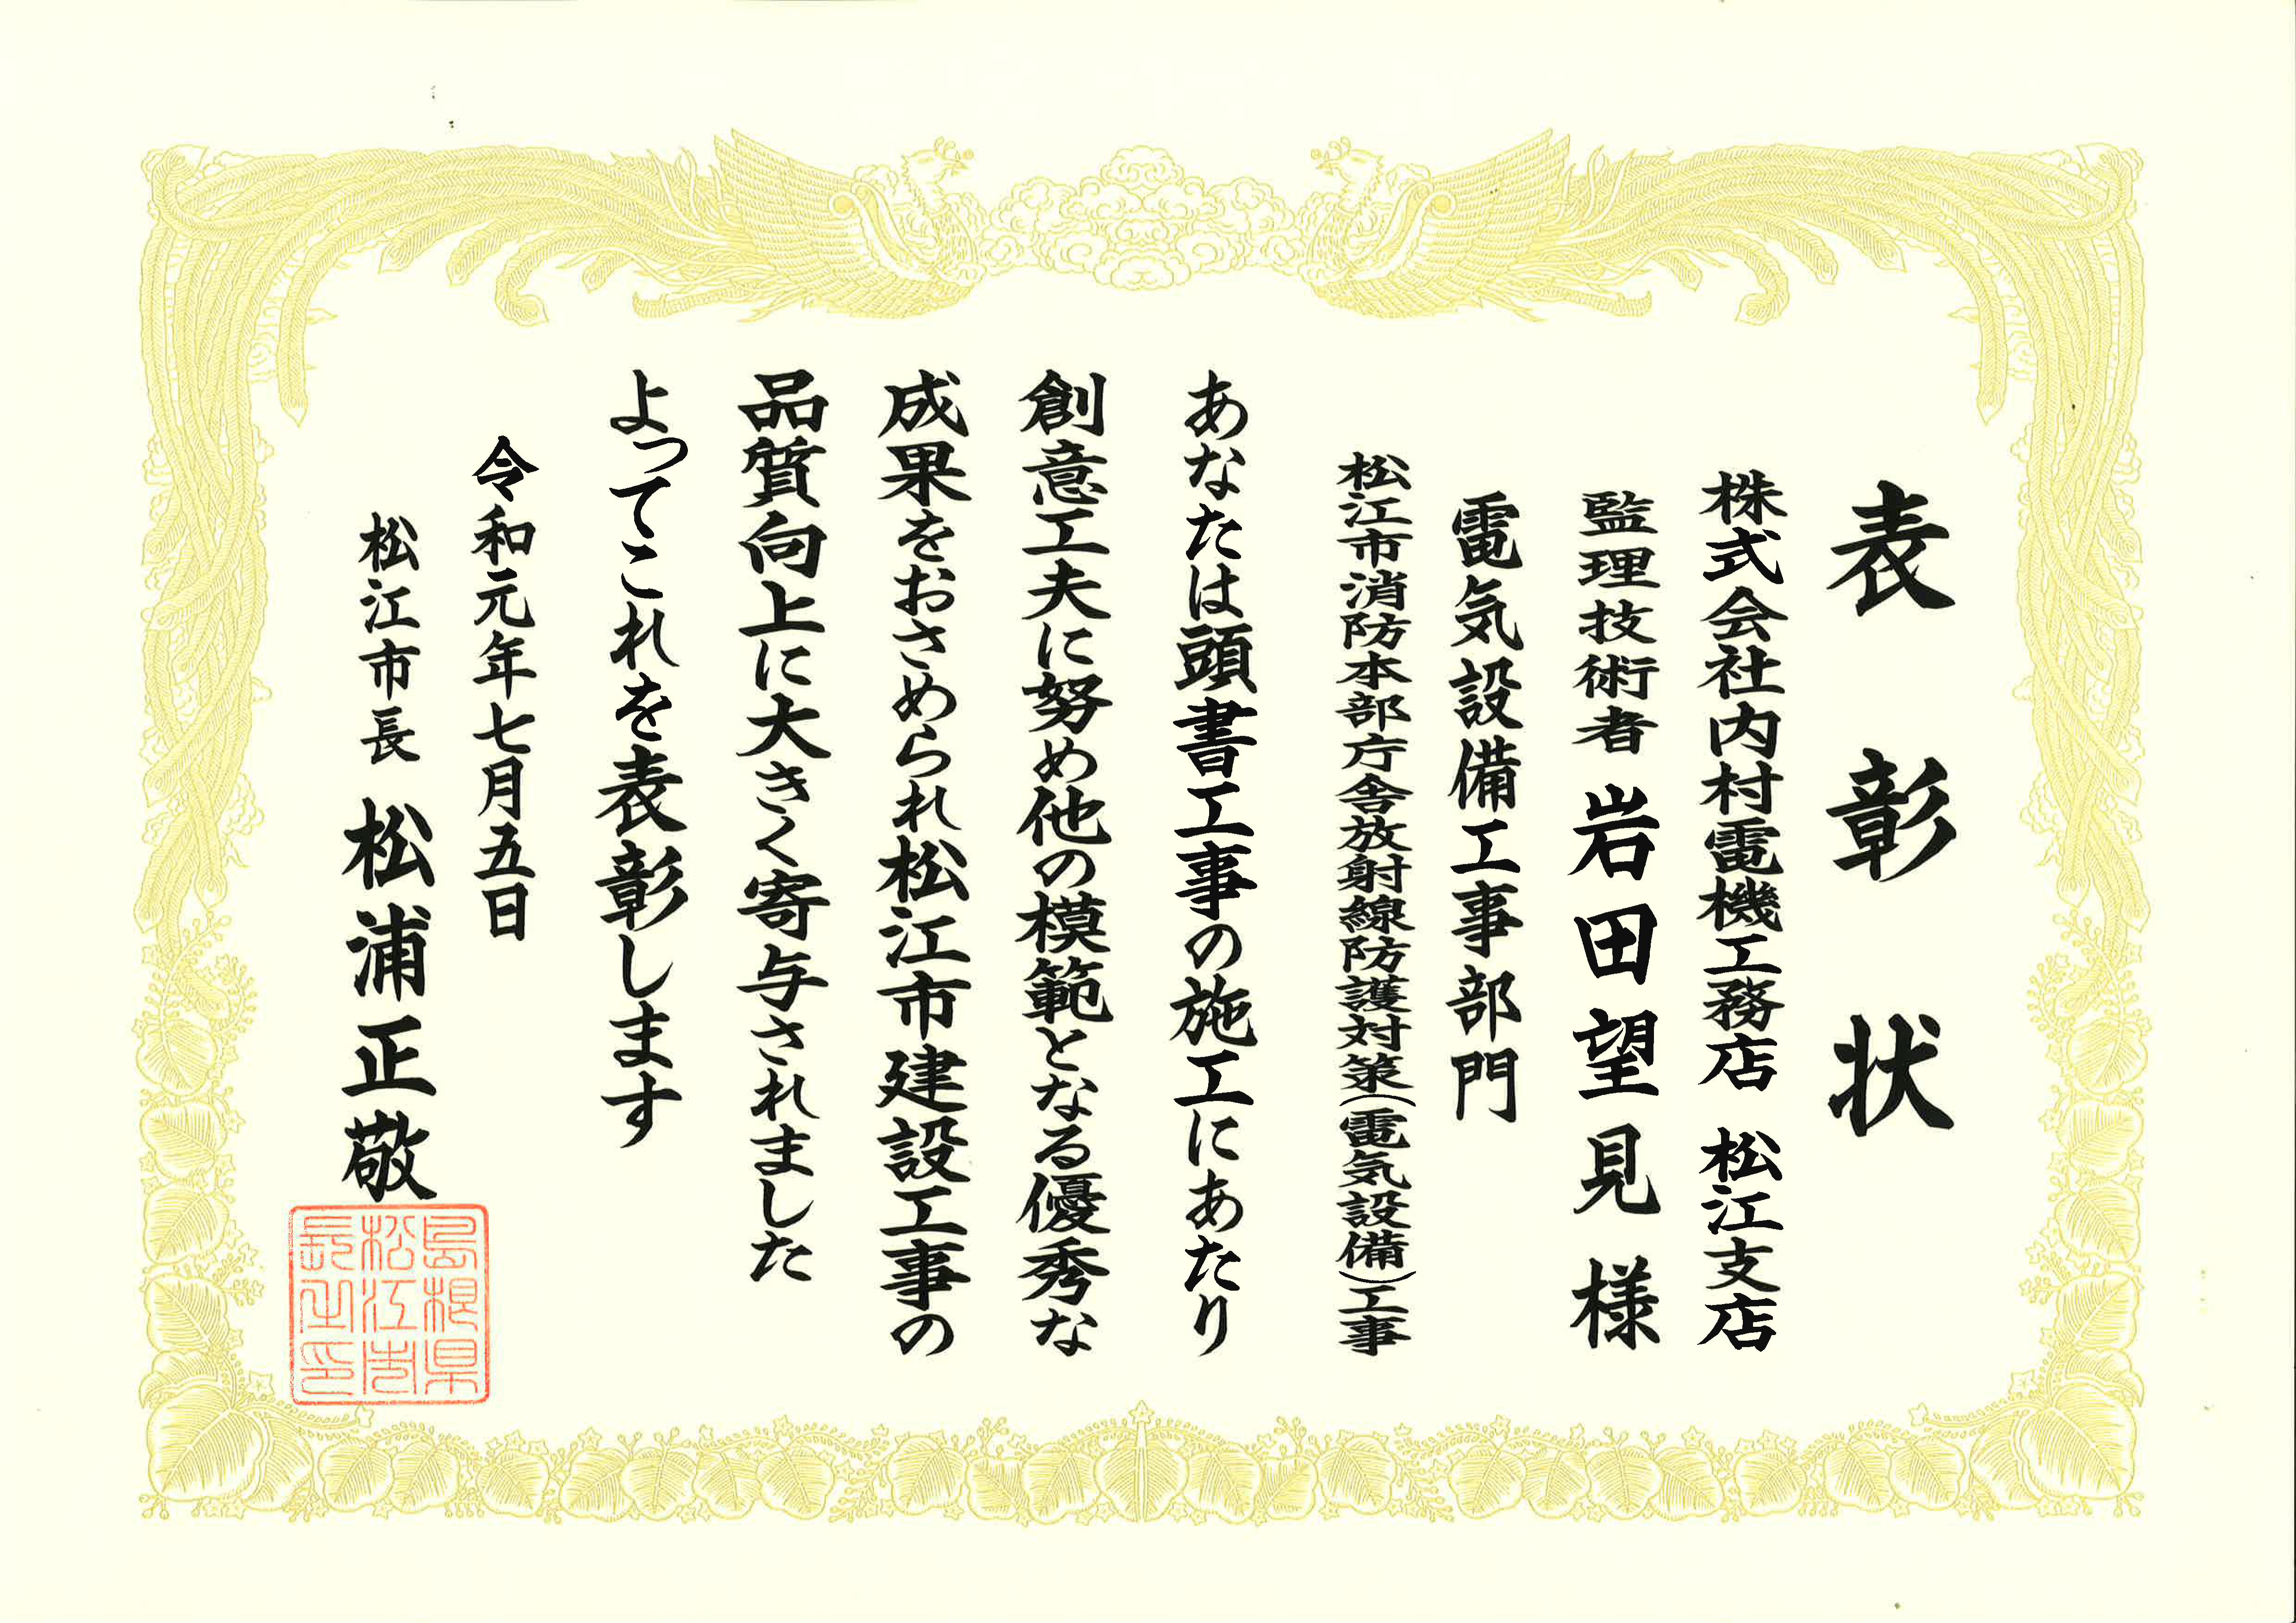 表彰状
株式会社内村電機工務店 松江支店
監理技術者 岩田望見 様
電気設備工事部門
松江市消防本部庁舎放射線防護対策(電気設備)工事
あなたは頭書工事の施工にあたり
創意工夫に努め他の模範となる優秀な
成果をおさめられ松江市建設工事の
品質向上に大きく寄与されました
よってこれを表彰します
令和元年七月五日
松江市長 松浦正敬
島根県
松江市
長之印